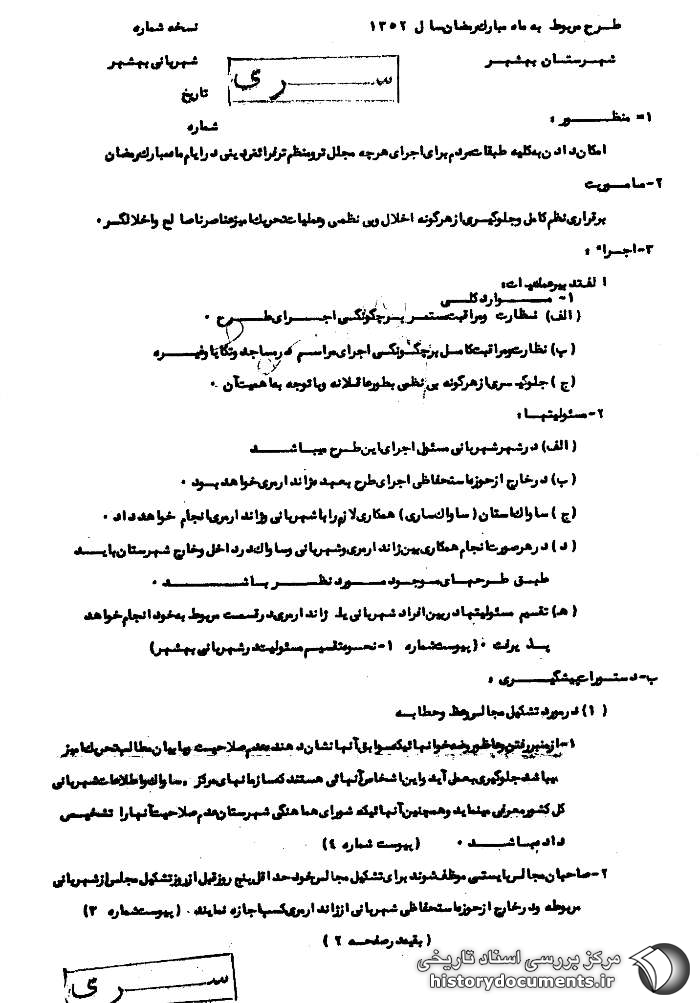 طرح مربوط به ماه مبارک رمضان سال ۱۳۵۲
نسخه شماره
شهرستان بهشهر
سری
شهربانی بهشهر
تاریخ
شماره
۱= منظور :
امکان دادن به کلیه طبقات مردم برای اجرای هرچه مجلل تر و منظم تر فرائض دینی در ایام ماه مبارک رمضان
۲-ماموریت
برقراری نظم کامل و جلوگیری از هرگونه اخلال و بی نظمی و عملیات تحریک آمیز عناصر ناصالح و اخلالگر ۰
۳-اجراء :
الف تدبیر عملیات:
۱- موارد کلی
(الف) نظارت و مراقبت مستمر بر چگونگی اجرای طرح ۰
(ب) نظارت و مراقبت کامل بر چگونگی اجرای مراسم در مساجد و تکایا و غیره
(ج) جلوگیری از هرگونه بی نظمی بطور عاقلانه و با توجه به اهمیت آن ۰
۲-مسئولیتها:
(الف) در شهر شهربانی مسئول اجرای این طرح میباشد
(ب) در خارج از حوزه استحفاظی اجرای طرح بعهده ژاندارمری خواهد بود ۰
(ج) ساواک استان (ساواک ساری) همکاری لازم را با شهربانی و ژاندارمری انجام خواهد داد ۰
(د) در هر صورت انجام همکاری بین ژاندارمری و شهربانی و ساواک در داخل و خارج شهرستان باید
طبق طرحهای موجود مورد نظر باشد ۰
(هـ) تقسیم مسئولیتها در بین افراد شهربانی یا ژاندارمری در قسمت مربوط به خود انجام خواهد
پذیرفت ۰ (پیوست شماره ۱-نحوه تقسیم مسئولیت در شهربانی بهشهر)
ب-دستورات پیشگیری :
(۱) در مورد تشکیل مجالس وعظ و خطابه
۱-از منبر رفتن وعاظ و روضه خوانهائیکه سوابق آنها نشان دهنده عدم صلاحیت و یا بیان مطالب تحریک آمیز
میباشد جلوگیری بعمل آید و این اشخاص آنهائی هستند که سازمانهای مرکز و ساواک و اطلاعات شهربانی
کل کشور معرفی مینماید و همچنین آنهائیکه شورای هماهنگی شهرستان عدم صلاحیت آنها را تشخیص
داده باشد ۰ (پیوست شماره ٤)
۲-صاحبان مجالس بایستی موظف شوند برای تشکیل مجالس خود حداقل پنج روز قبل از روز تشکیل مجلس از شهربانی
مربوطه و در خارج از حوزه استحفاظی شهربانی از ژاندارمری کسب اجازه نمایند ۰ (پیوست شماره ۳)
(بقیه در صفحه ۲)
سری
مرکز بررسی اسناد تاریخی
historydocuments.ir